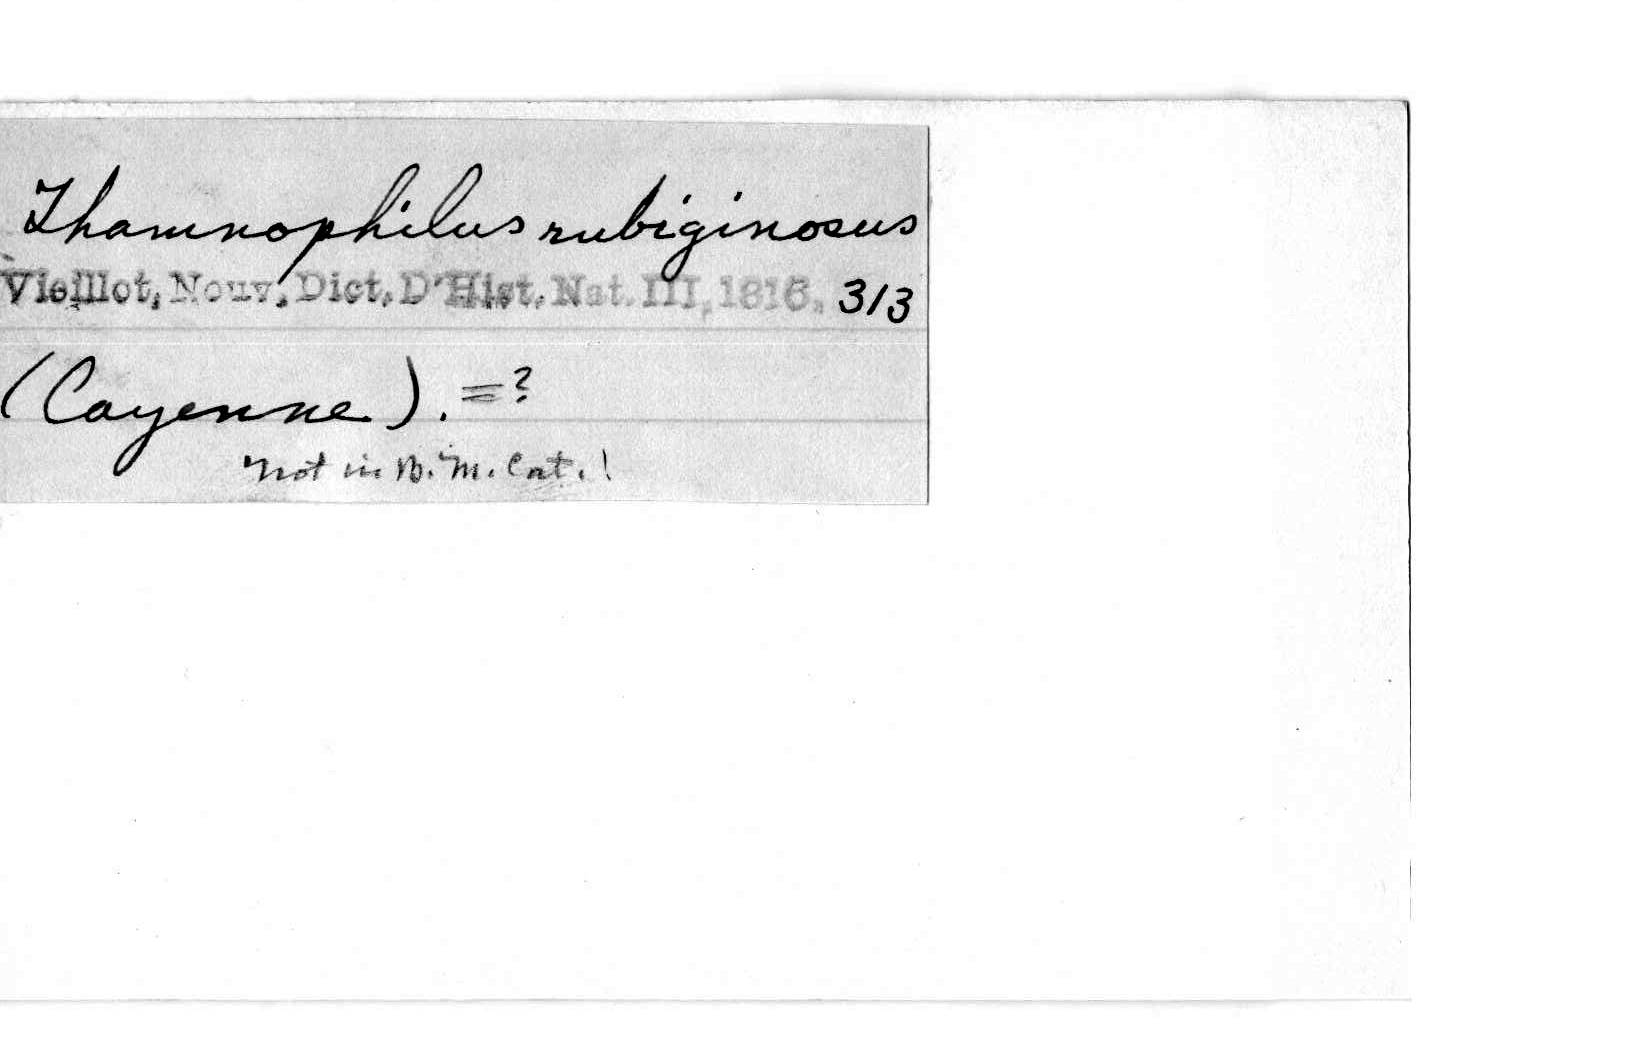 Thamnophilus rubiginosus
Vieillot, Nouv, Dict. D'Hist. Nat. III, 1816, 313
(Cayenne). =?
Not in B. M. Cat. !